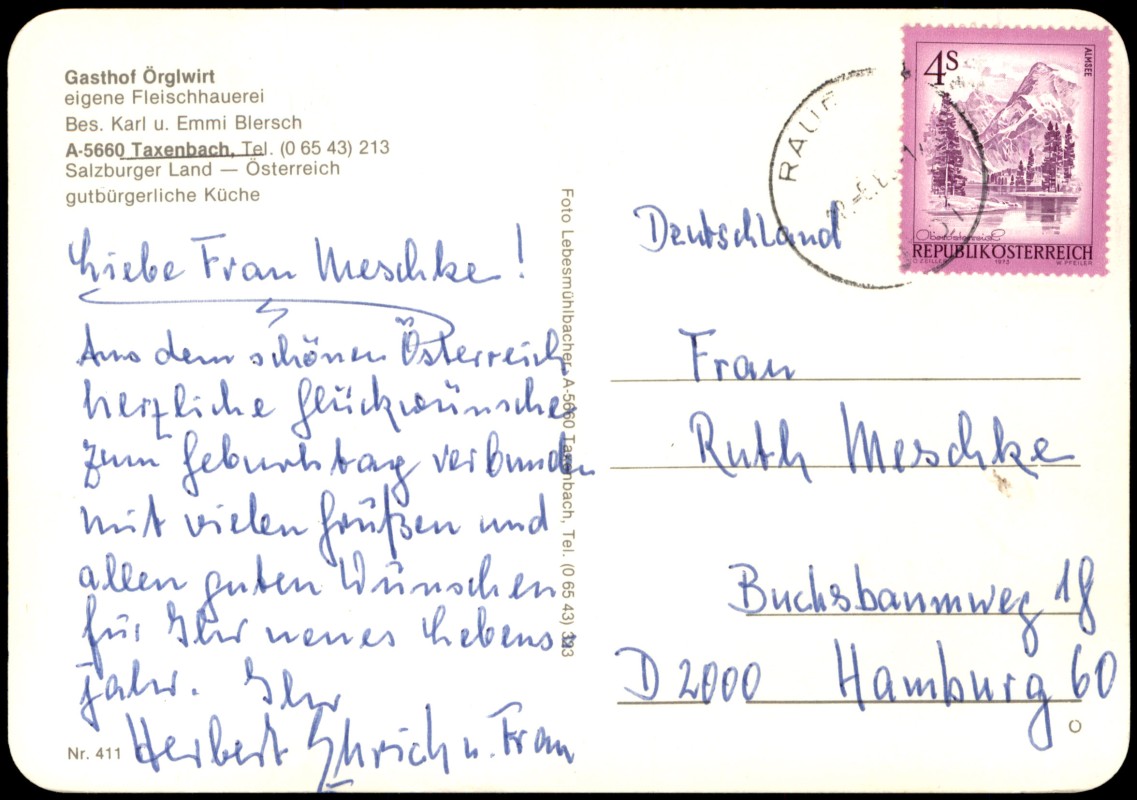 Gasthof Örglwirt
eigene Fleischhauerei
Bes. Karl u. Emmi Blersch
A-5660 Taxenbach, Tel. (0 65 43) 213
Salzburger Land — Österreich
gutbürgerliche Küche
Liebe Frau Meschke!
Aus dem schönen Österreich
herzliche Glückwünsche
zum Geburtstag verbunden
mit vielen Grüßen und
allen guten Wünschen
für Ihr neues Lebens-
jahr. Ihr
Herbert u. Frau
Nr. 411
Foto Lebesmühlbacher, A-5660 Taxenbach, Tel. (0 65 43) 313
RAUR
4S
ALMSEE
Oberösterreich
REPUBLIK ÖSTERREICH
O. ZEILLER 1973 W. PFEILER
Deutschland
Frau
Ruth Meschke
Buchsbaumweg 18
D 2000 Hamburg 60